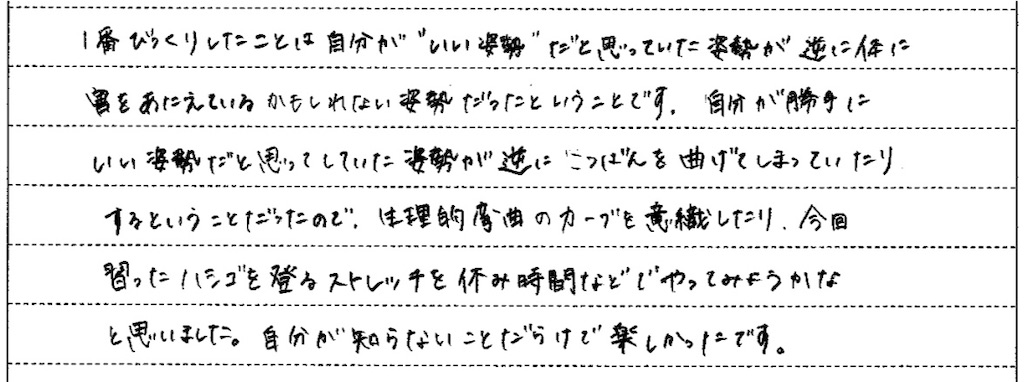 1番びっくりしたことは自分が"いい姿勢"だと思っていた姿勢が逆に体に
害をあたえているかもしれない姿勢だったということです。自分が勝手に
いい姿勢だと思ってしていた姿勢が逆にこつばんを曲げてしまっていたり
するということだったので、生理的弯曲のカーブを意識したり、今回
習ったハシゴを登るストレッチを休み時間などでやってみようかな
と思いました。自分が知らないことだらけで楽しかったです。